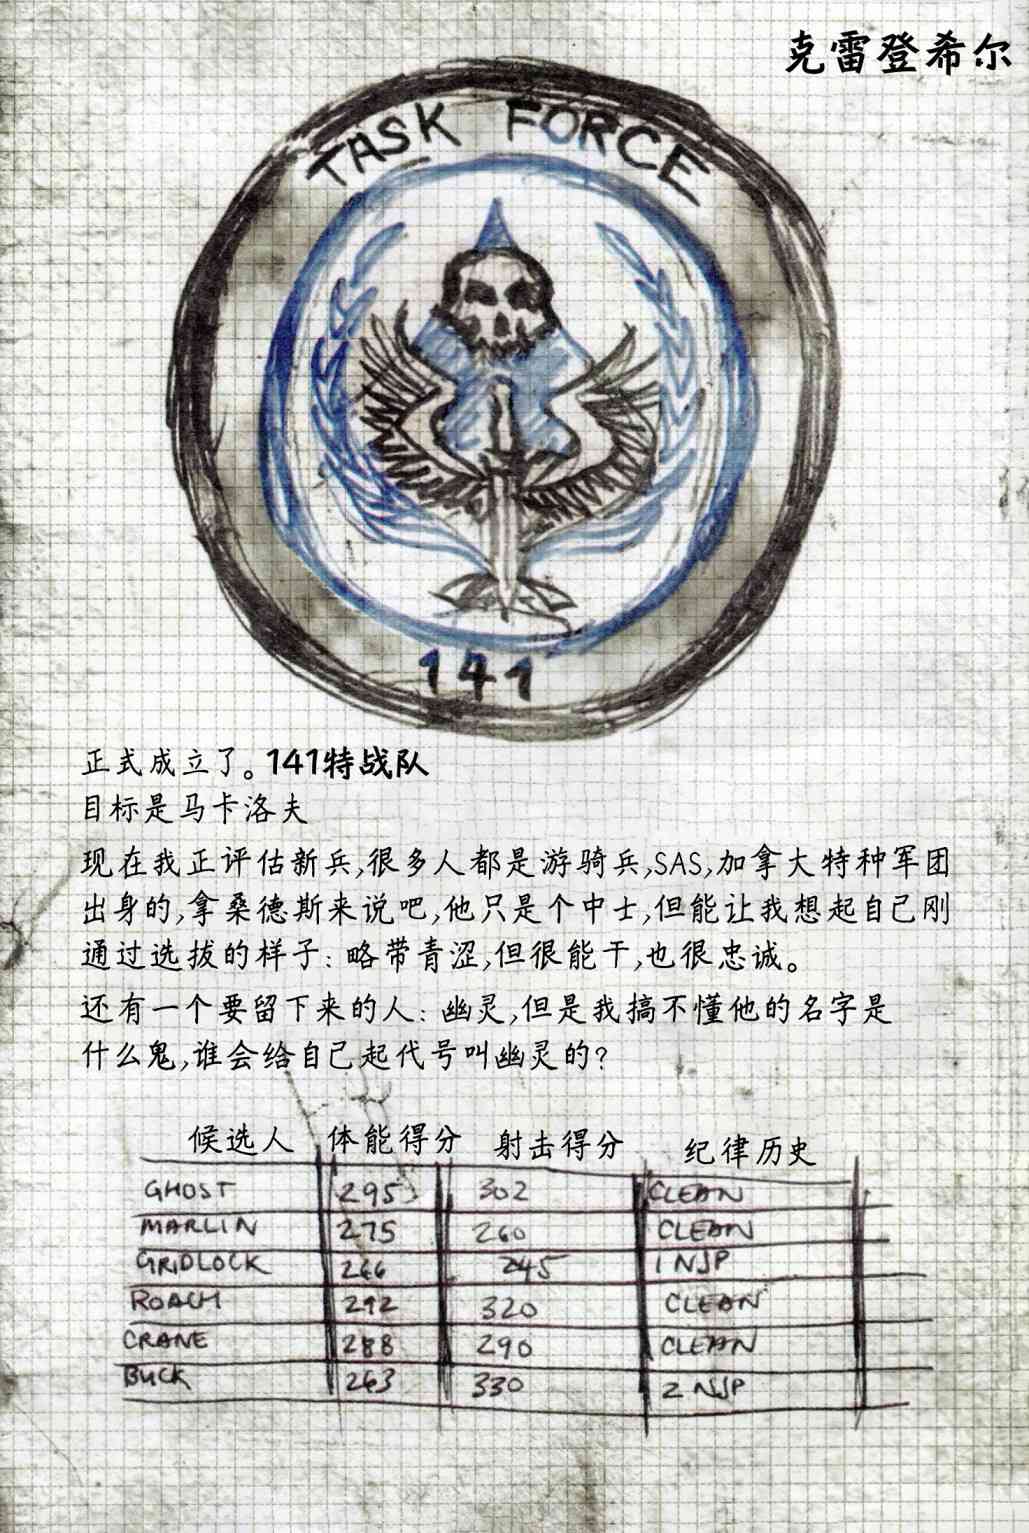 克雷登希尔
TASK FORCE
141
正式成立了。141特战队
目标是马卡洛夫
现在我正评估新兵,很多人都是游骑兵,SAS,加拿大特种军团
出身的,拿桑德斯来说吧,他只是个中士,但能让我想起自己刚
通过选拔的样子：略带青涩,但很能干,也很忠诚。
还有一个要留下来的人：幽灵,但是我搞不懂他的名字是
什么鬼,谁会给自己起代号叫幽灵的?
候选人 体能得分 射击得分 纪律历史
GHOST 295 302 CLEAN
MARLIN 275 260 CLEAN
GRIDLOCK 266 245 1 NJP
ROACH 292 320 CLEAN
CRANE 288 290 CLEAN
BUCK 263 330 2 NJP